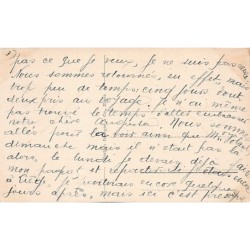 pas ce que je veux, je ne suis pas
Nous sommes retournés, en effet, mais
trop peu de temps, cinq jours dont
deux pris au voyage. Je n'ai même
pas trouvé le temps d'aller embrasser
notre chère Nous sommes
allés pour la voir ainsi que
dimanche mais il n'était pas là
alors, le lundi je devais déjà faire
mon paquet et
à Liège. Je voudrais encore quelques
jours après, mais ici c'est presque